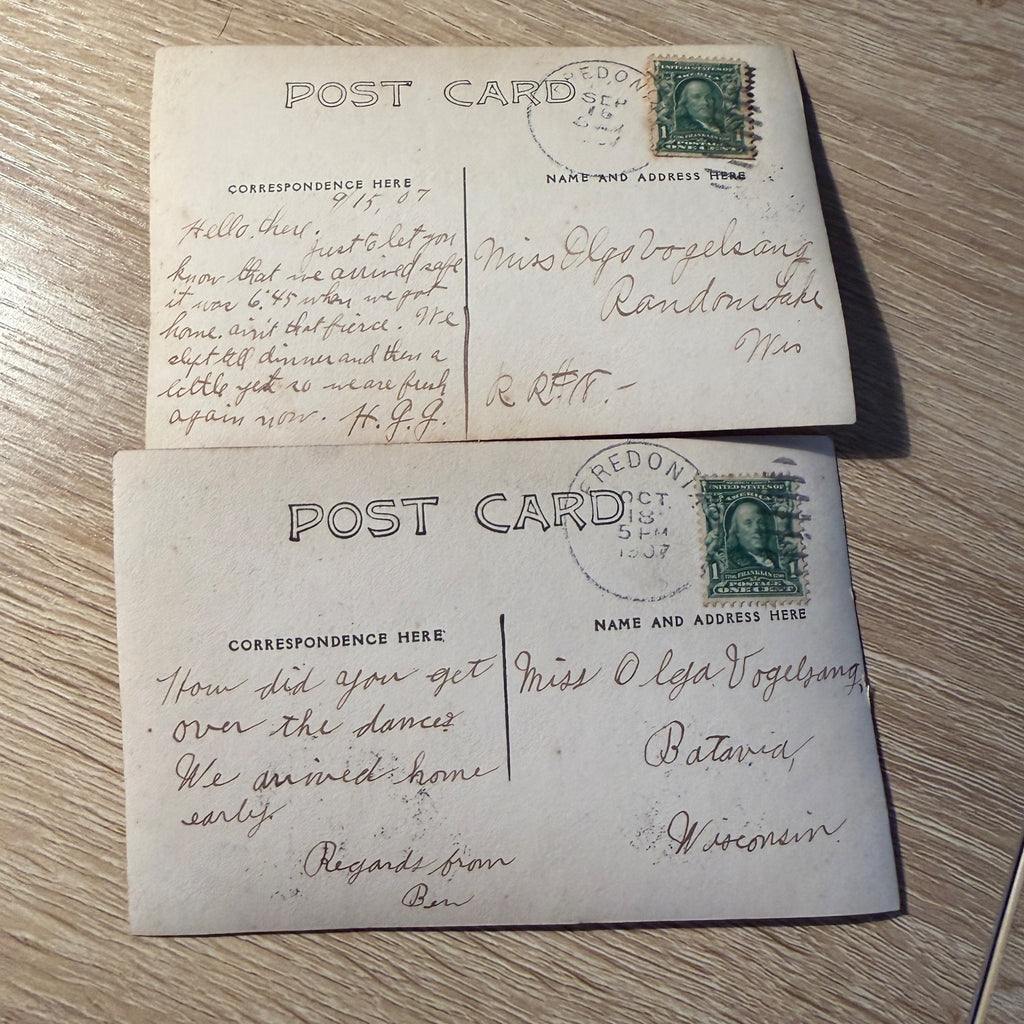 POST CARD
REDONI
SEP
16
UNITED STATES OF
AMERICA
1 1
FRANKLIN
POSTAGE
ONE CENT
CORRESPONDENCE HERE
NAME AND ADDRESS HERE
9/15, 07
Hello there.
just to let you
know that we arrived safe
it was 6:45 when we got
home. ain't that fierce. We
slept till dinner and then a
little yet so we are fresh
again now. H. G. G.
Miss Olga Vogelsang
Random Lake
Wis
R R#
POST CARD
FREDONI
OCT
18
5 PM
1907
UNITED STATES OF
AMERICA
1 1
FRANKLIN
POSTAGE
ONE CENT
CORRESPONDENCE HERE
NAME AND ADDRESS HERE
How did you get
over the dance?
We arrived home
early.
Regards from
Ben
Miss Olga Vogelsang,
Batavia,
Wisconsin